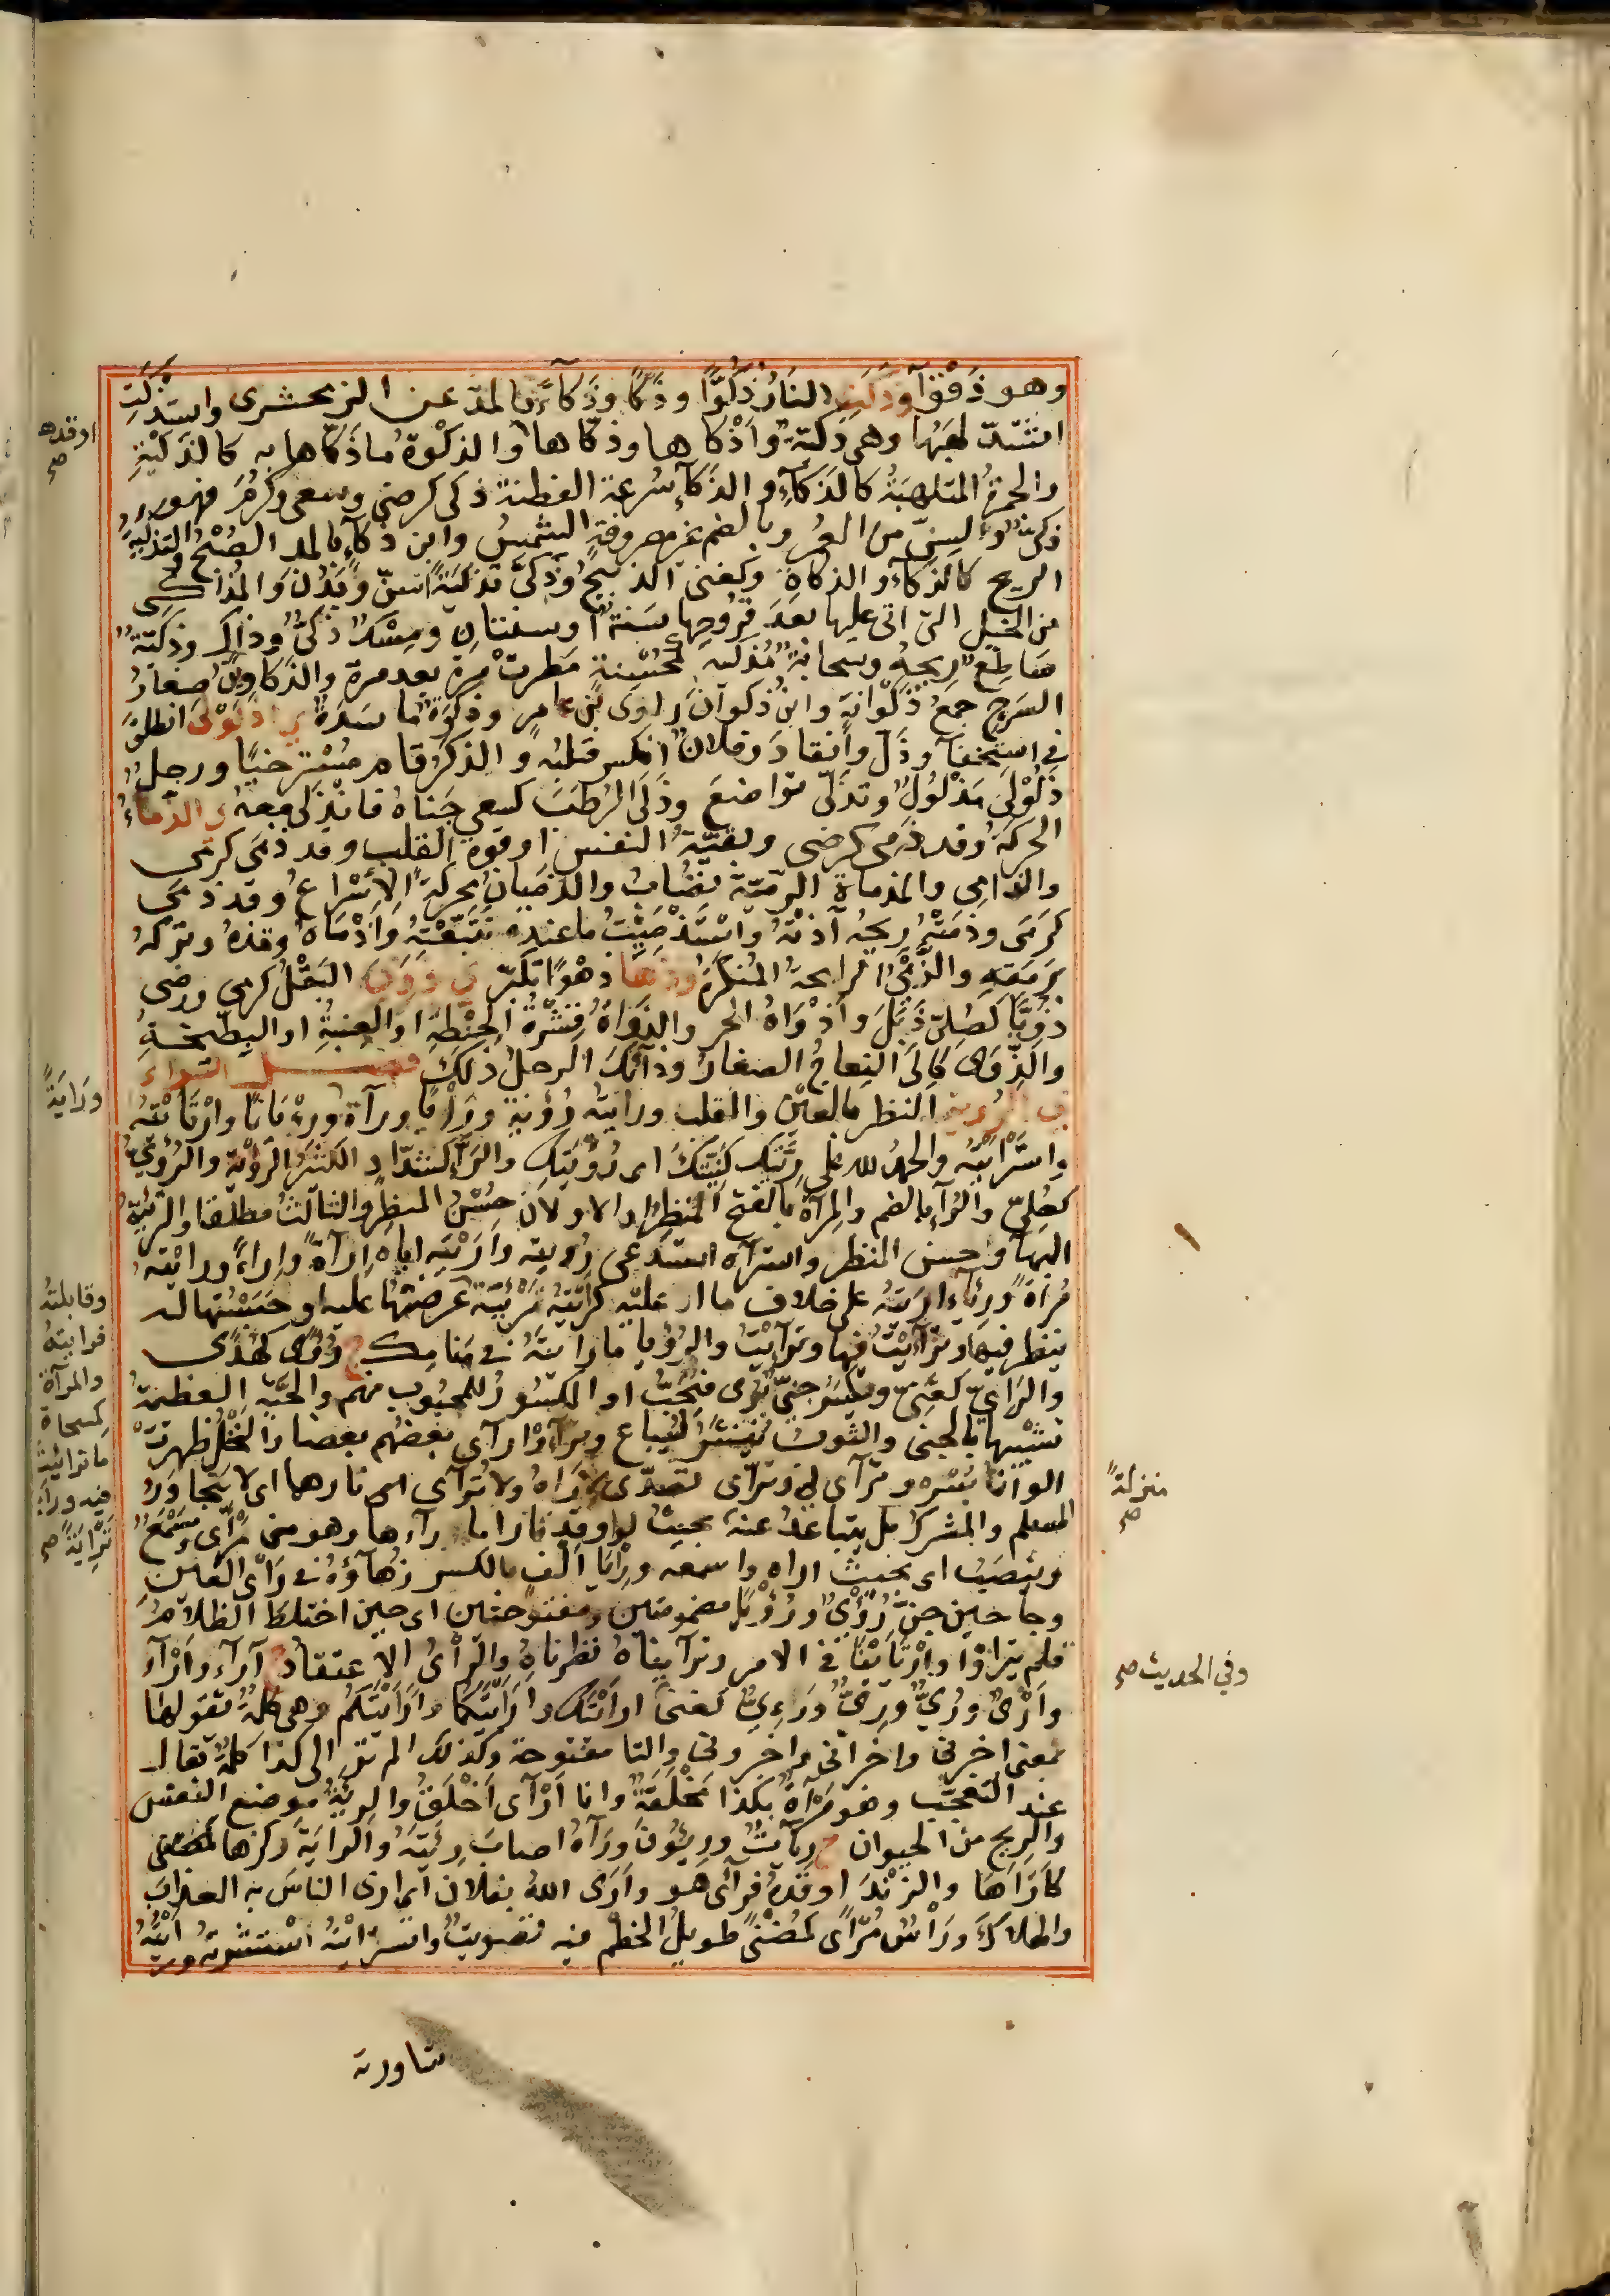 وهو ذقوآ وذَكَتِ النارُ ذُكُوًّا وذَكًا وذَكآءً بالمدّ عن الزمخشرى واستذكت
اشتدّ لهبُها وهى ذكيّة وأذكاها وذكّاها والذكوة ما ذكّاها به كالذكية
والجمرةُ الملتهبةُ كالذكآء والذكآء سُرعة الفطنة ذكى كرضى وسعى وكرُم فهو
ذكىٌّ والسنّ من العُمر وبالضم غير مصروفة الشمسُ وابن ذكآء بالمد الصُبحُ والتذكية
الذبح كالذكآء والذكاة وكغنى الذبيحُ وذكّى تذكيةً اسنّ وبَدُنَ والمذاكى
من الخيل التى اتى عليها بعد قروحها سَنَةٌ اوسنتان ومِسْكٌ ذكىٌّ وذاكٍ وذكيّة
ساطعٌ ريحُه وسحابة مُذَكِّية كمُحسِّنة مَطرتْ مرةً بعد مرة والذكاوينُ صغارُ
السَرح جمعُ ذَكْوانة وابن ذكوان راوى بن عامر وذَكْوَةُ ماسدة ى اذلولى انطلق
فى استخفآ وذَلّ وانقاد وفلان انكسر قلبُه والذكرُ قام مُسترخيًا ورجلٌ
ذَلَوْلىً مَذلُولٌ وتذلّى تواضع وذلى الرُطَبَ كسعى جَناهُ فانذلى معهُ ى الذماءُ
الحركةُ وقد ذمى كرضى وبقيّةُ النفس اوقوة القلب وقد ذَمَى كرمى
والذامى والمذماة الرميّة تُصَابُ والذَمَيانُ محركةً الإسْراعُ وقد ذمى
كرمَى وذمَتْهُ ريحُه آذتْهُ واسْتَذْمَيْتُ ما عنده تَتَبّعْتُهُ وأذْماهُ وقذهُ وتركهُ
برَمَقه والذَّمْىُ الرايحةُ المُنكَرةُ وذها ذَهْوًا تكبّر ى ذوى البَقْلُ كرمى ورضى
ذُوِيًّا كصُلِىّ ذَبَلَ وأذْواهُ الحر والذَوَاةُ قِشْرَةُ الحِنْطة او العِنَبةِ او البِطّيخةِ
والذِّوَى كإلَى النعاجُ الصغارُ وذآئكَ الرجلُ ذلك فصل الراء
ى الرؤية النظر بالعين والقلب ورأيته رُؤيةً ورأيًا ورآةً ورِءْيانًا وارْتَأيْتُه
واستَرْأيْتُه والحمدُ لله على رِيَّتِك كَنِيَّتِكَ اى رُؤيَتِك والرَّآءُ كشدّاد الكثيرُ الرؤية والرُؤىُّ
كصُلِىّ والرُوآءُ بالضم والمرآة بالفتح المنظرُ او الاولان حُسْنُ المنظر والثالثُ مطلقا والترئيّةُ
البهآ وحسن المنظر واسترآه استدعى رؤيته وأرَيْتُه اياه إرآةً وإراءً ورأيْتُه
مُرآةً ورئآء أريتُه على خلاف ما انا عليه كرَأيْتُه تَرْئِيةً عرضتُها عليه او حَبَسْتُها له
ينظر فيها وترآءَيْتُ فيها وترأّيْتُ والرؤيا ما رأيتَهُ فى منامك ج رُؤًى كهُدًى
والرَئىّ كغَنِىّ ويُكسَرُ جِنىٌّ يُرى فيُحَبُّ او المكسورُ للمحبوب منهم والحَيّة العظيمةُ
تشبيها بالجنى والثوبُ يُنشَرُ ليُباع وترآءَوْا رآى بعضُهم بعضا والنخلُ ظهرتْ
الوانُ بُسْره وترآى لى وترأّى تصدّى لأراهُ ولا تترآى اى نارهما اى لا يتجاوَرُ
المسلم والمشرك بل يتباعَدُ عنه بحيثُ لو اوقد نارا ما رآءها وهو منى مَرْأًى ومَسْمَعٌ
ويُنصَبُ اى بحيثُ اراه واسمعه ورِئَا الف بالكسر زُهآؤهُ فى رأى العين
وجا حين جنّ رُؤْىٌ ورُؤْيًا مضمومتين ومفتوحتين اى حين اختلط الظلامُ
فلم يتراوا وارْتأيْنَا فى الامر وترآيناهُ نظرناه والرأىُ الاعتقاد ج آرآء وأرْآء
وأرْىٌ ورُىٌّ ورِىٌّ ورَئِىٌّ كغنىّ أرأيْتَكَ وأرأيْتَكُما وأرأيْتَكُم وهى كلمةٌ تقولها
بمعنى اخبرنى واخبرانى واخبرونى والتا مفتوحة وكذلك الم تَرَ الى كذا كلمةٌ تقال
عند التعجّب وهو مَرْآةٌ بكذا مَخْلَقَةٌ وانا أرْآى أخْلَقُ والرِئَةُ موضع النفس
والريح من الحيوان ج رِئاتٌ ورِئُونَ ورآهُ اصابَ رِئَتَهُ والرايةَ ركزها
كأرآها والزَنْدَ اوقدهُ فرآى هو وأرى اللهُ بفلان اى ارى الناسَ به العذابَ
والهلاكَ ورأسٌ مُرْأًى كمُضْنًى طويلُ الخطم فيه تصويبٌ واسترأيْتُهُ استشرتهُ ورايَيْتُهُ
شاورته
اوقدها صح
ورَايَةً
وقابلته
فرايته
والمرآة
كمسحاة
ما ترايتَ
فيه ورآه
تَرْاِيَةً صح
منزلةً صح
وفى الحديث صح